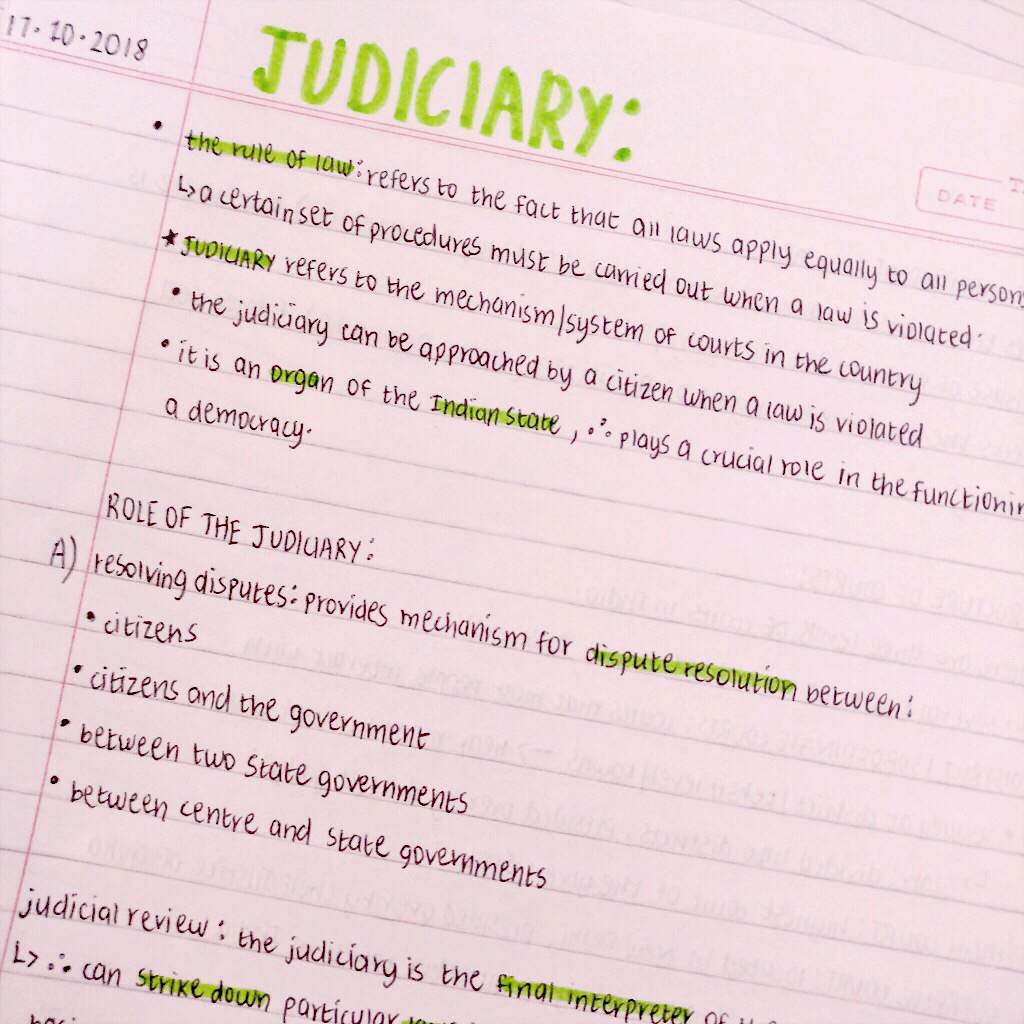 17.10.2018
JUDICIARY:
DATE
• the rule of law: refers to the fact that all laws apply equally to all person
↳ a certain set of procedures must be carried out when a law is violated.
★ JUDICIARY refers to the mechanism/system of courts in the country
• the judiciary can be approached by a citizen when a law is violated
• it is an organ of the Indian State, ∴ plays a crucial role in the functionin
a democracy.
ROLE OF THE JUDICIARY:
A) resolving disputes: provides mechanism for dispute resolution between:
• citizens
• citizens and the government
• between two state governments
• between centre and state governments
judicial review: the judiciary is the final interpreter of
↳ ∴ can strike down particular